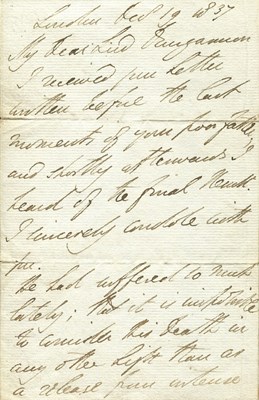 London Decr 19 1837
My Dear Lord Dungannon
I received your Letter
written before the last
moments of your poor Father,
and shortly afterwards I
heard of the final Result.
I sincerely condole with
you.
He had suffered so much
lately; that it is impossible
to consider his Death in
any other Light than as
a release from intense